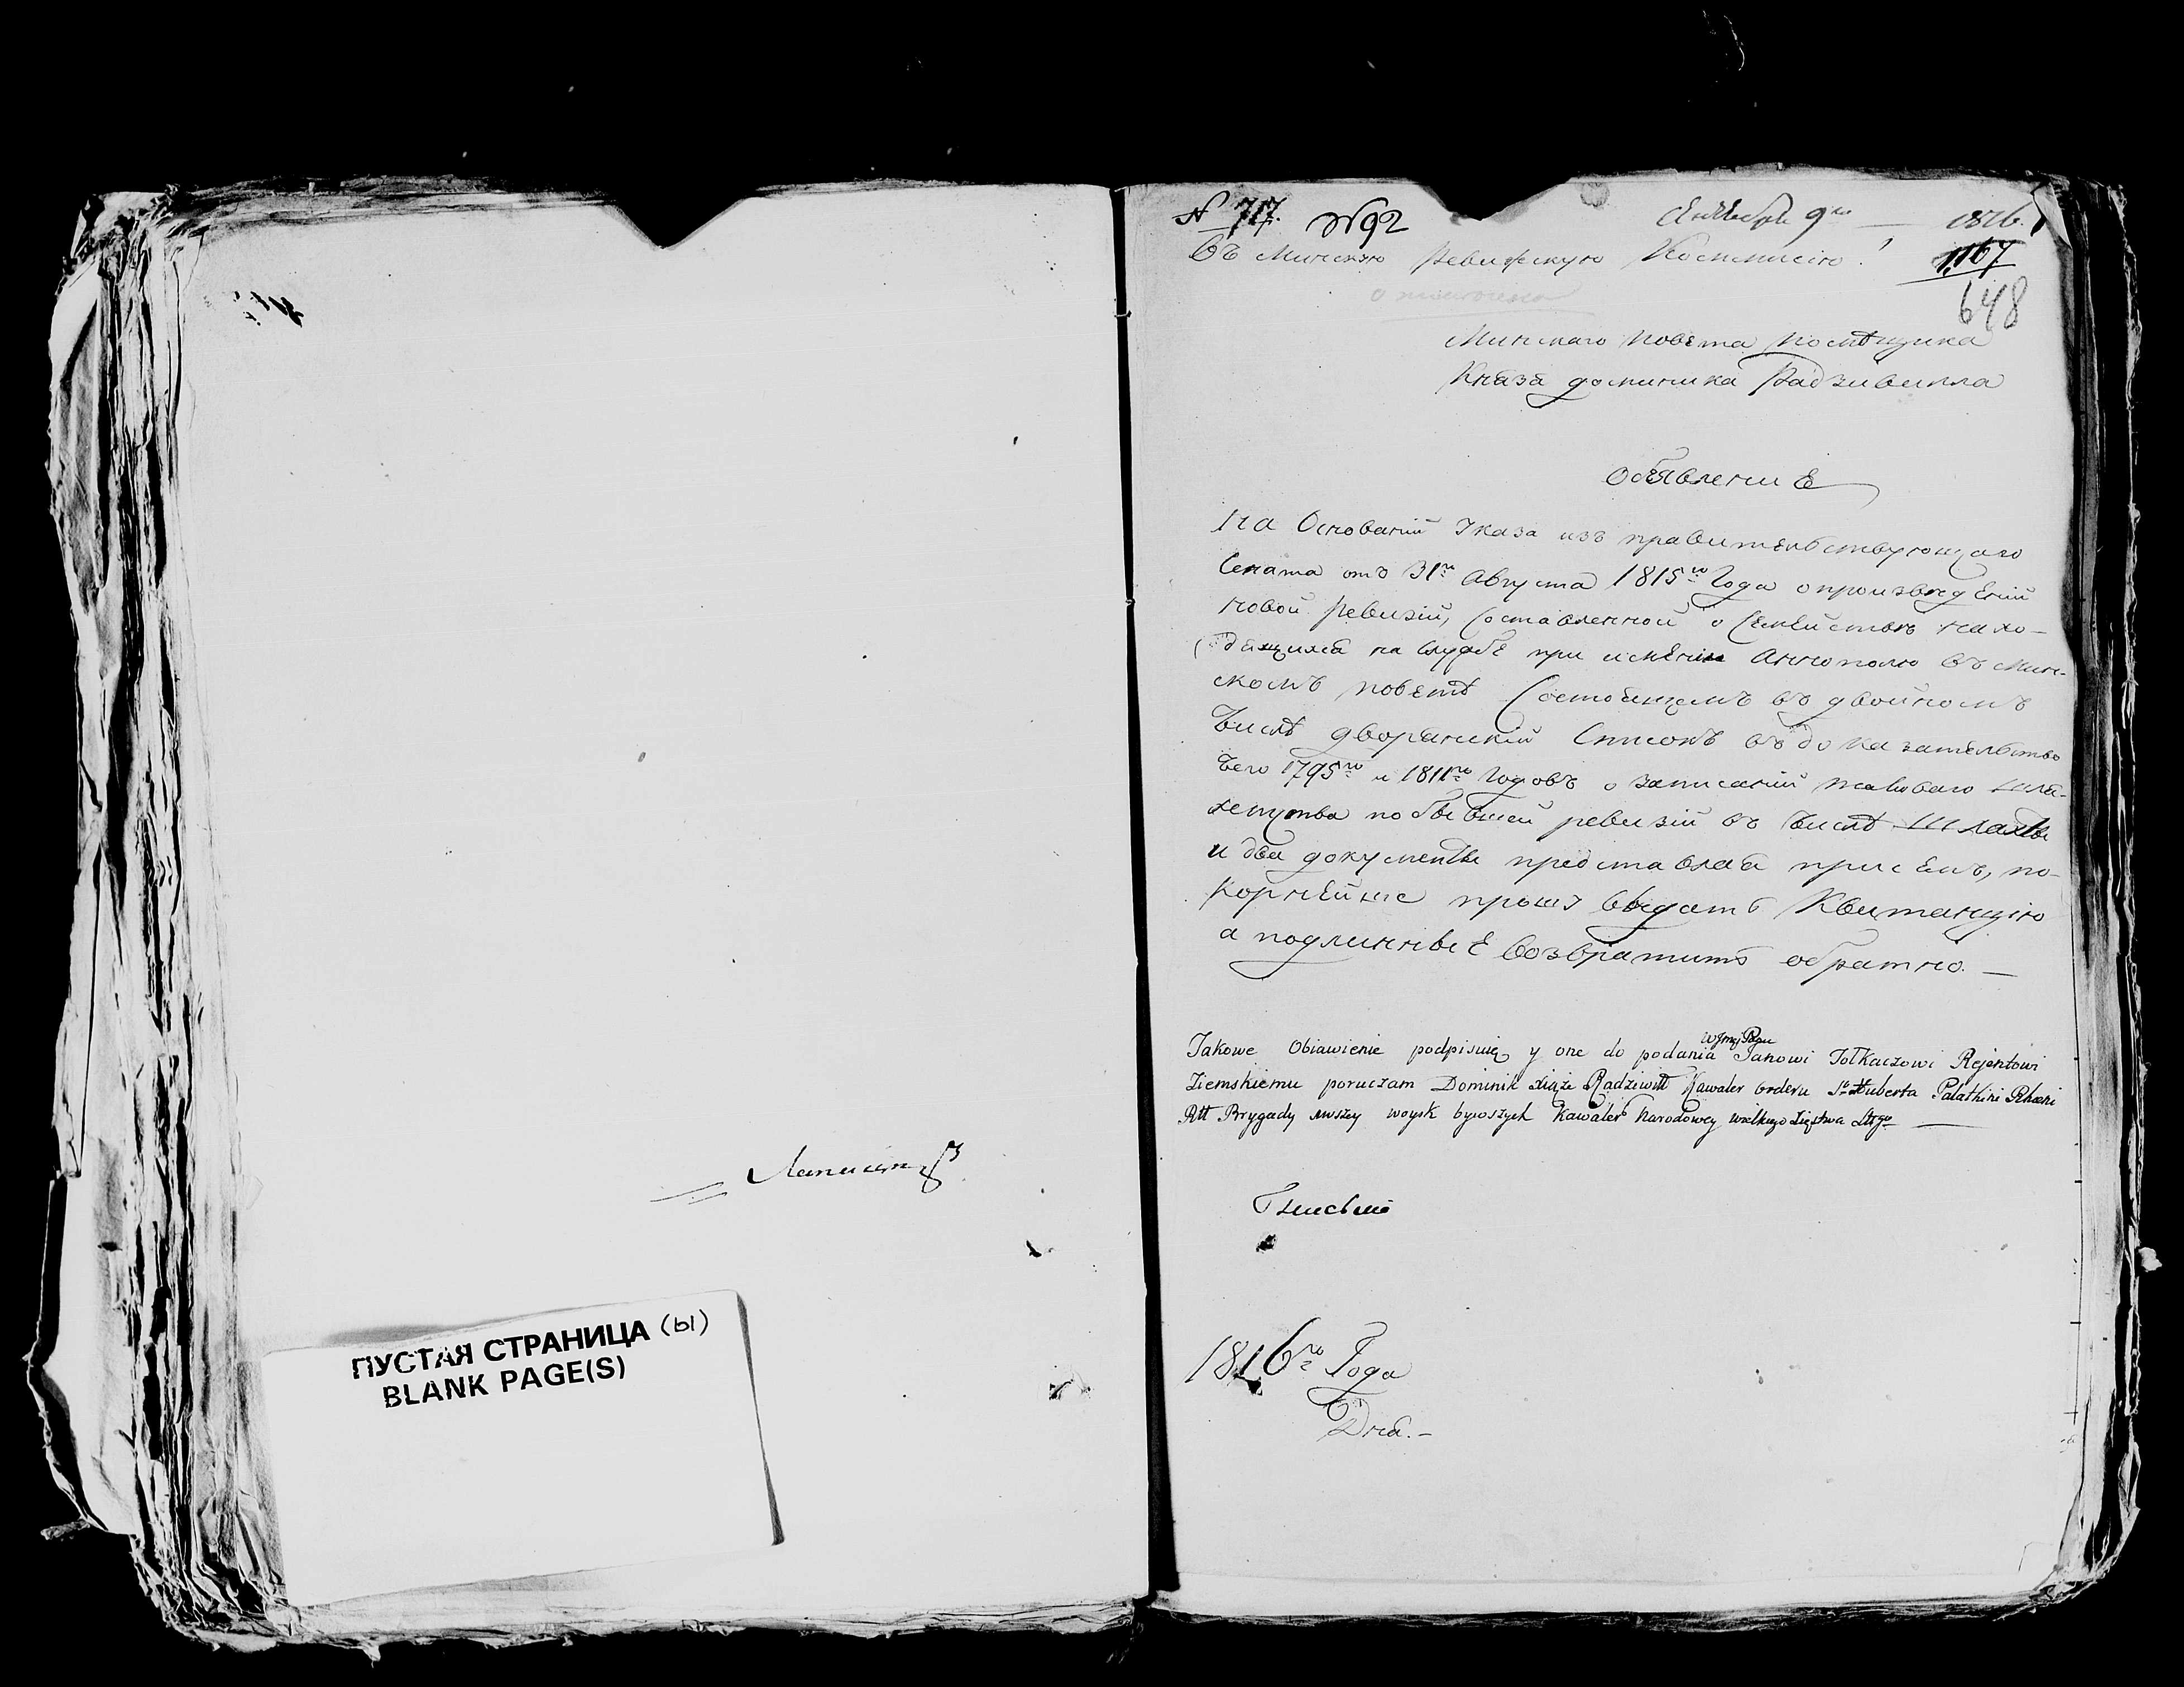 ПУСТАЯ СТРАНИЦА (ы)
BLANK PAGE(S)
N 717. N92 9го 1816.
Въ Минскую Ревижскую Коммисію 1167
648
Минскаго повета помѣщика
Князя доминика Радзивилла
Объявление
На Основаніи Указа изъ правительствующаго
Сената отъ 31го Августа 1815го Года о произведеніи
новой Ревизіи, Составленной о Семействѣ нахо-
дящихся на службѣ при имении Аннополю въ Мин-
скомъ поветѣ Состоящемъ въ двойномъ
Числѣ дворянский Списокъ въ доказательство
чего 1795го и 1811го Годовъ о записаніи таковаго шля-
хетства по бывшей ревизіи въ Числѣ Шляхты
и два документы представляя присемъ, по-
корнейше прошу выдать Квитанцію
а подлинные возвратить обратно. —
WJmci Panu
Takowe Obiawienie podpisuię y one do podania Janowi Tołkaczowi Rejentowi
Ziemskiemu poruczam Dominik Xiąże Radziwiłł Kawaler Orderu St Huberta Palatini Rheni
Rtt Brygady woysk bywszych Kawaler Narodowey Wielkiego Xięstwa Littgo —
1816го Года
Дня. –